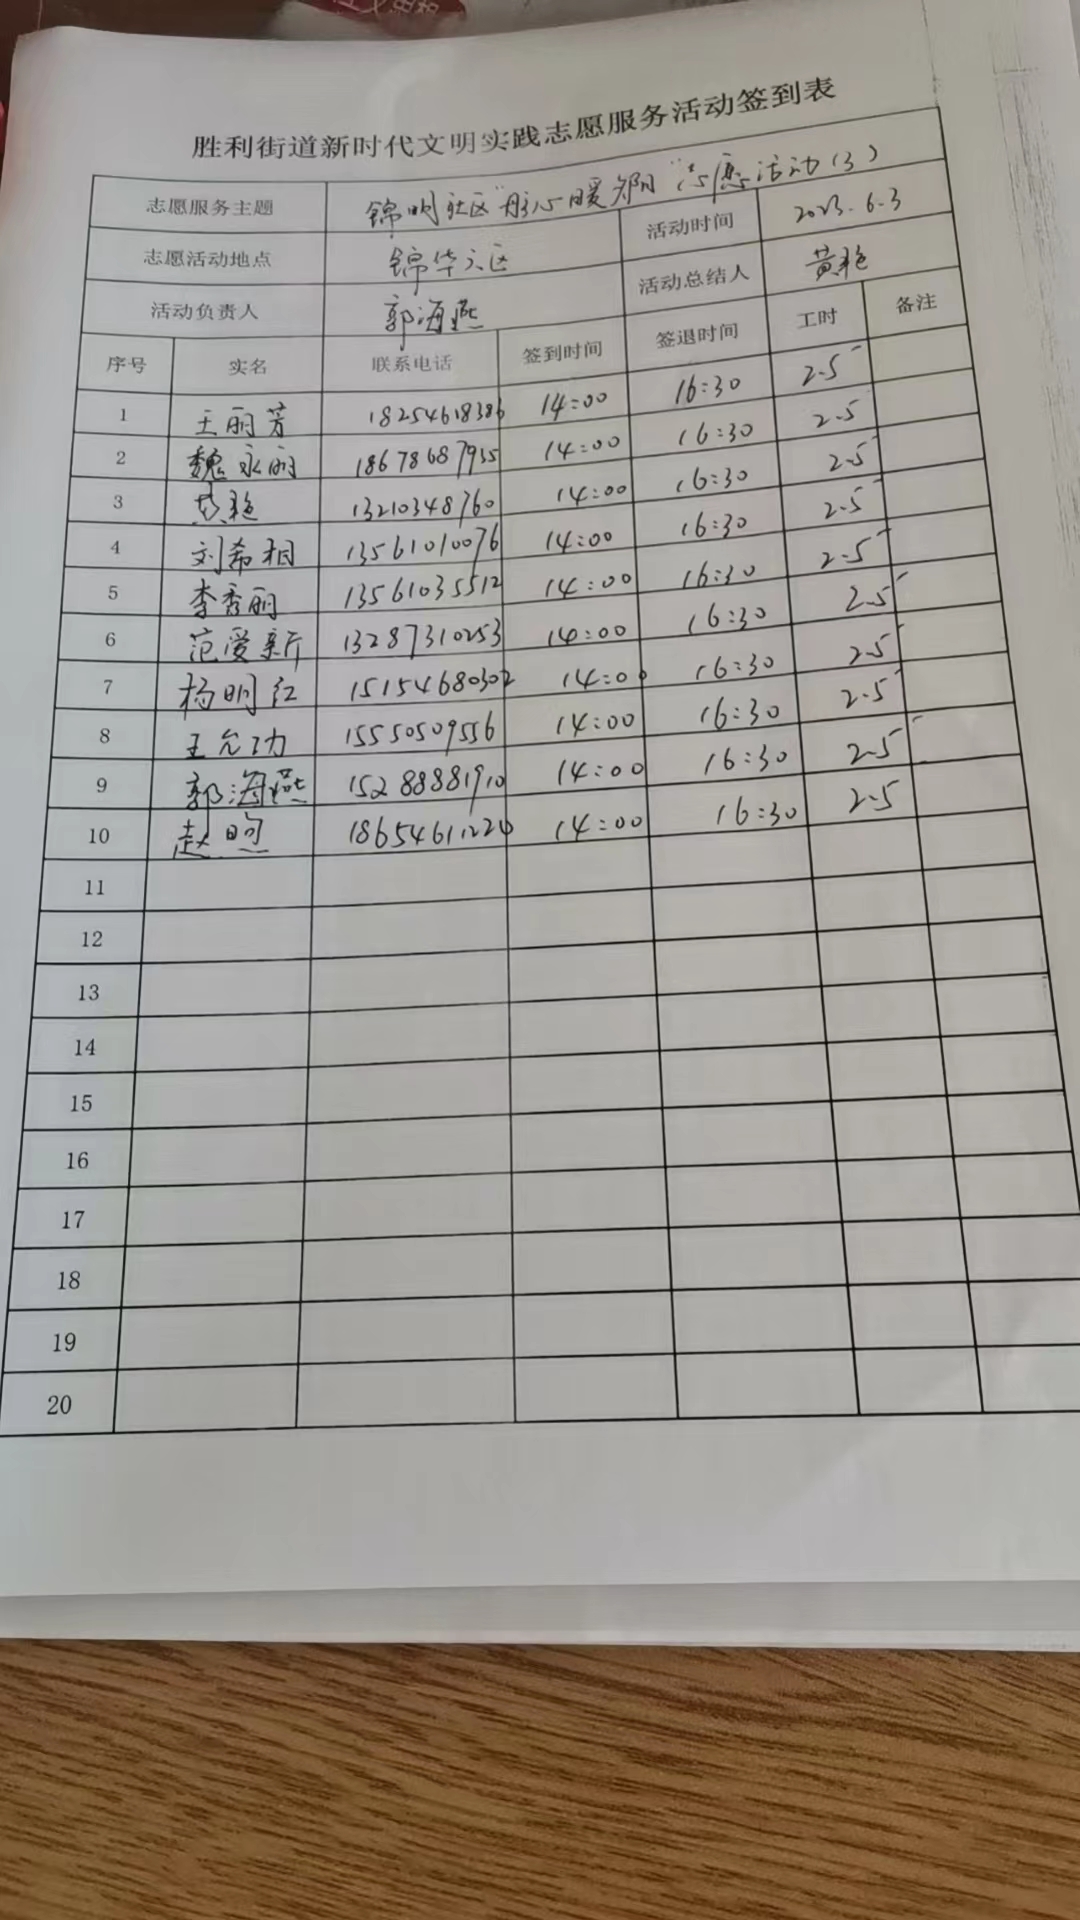 胜利街道新时代文明实践志愿服务活动签到表
志愿服务主题 锦明社区"彤心暖夕阳"志愿活动(3)
志愿活动地点 锦华六区 活动时间 2023.6.3
活动负责人 郭海燕 活动总结人 黄艳
序号 实名 联系电话 签到时间 签退时间 工时 备注
1 王丽芳 18254618386 14:00 16:30 2.5
2 魏永丽 18678687935 14:00 16:30 2.5
3 黄艳 13210348760 14:00 16:30 2.5
4 刘希相 13561010076 14:00 16:30 2.5
5 李秀丽 13561035512 14:00 16:30 2.5
6 范爱新 13287310253 14:00 16:30 2.5
7 杨明红 15154680302 14:00 16:30 2.5
8 王允功 15550509556 14:00 16:30 2.5
9 郭海燕 15288881910 14:00 16:30 2.5
10 赵昫 18654611220 14:00 16:30 2.5
11
12
13
14
15
16
17
18
19
20